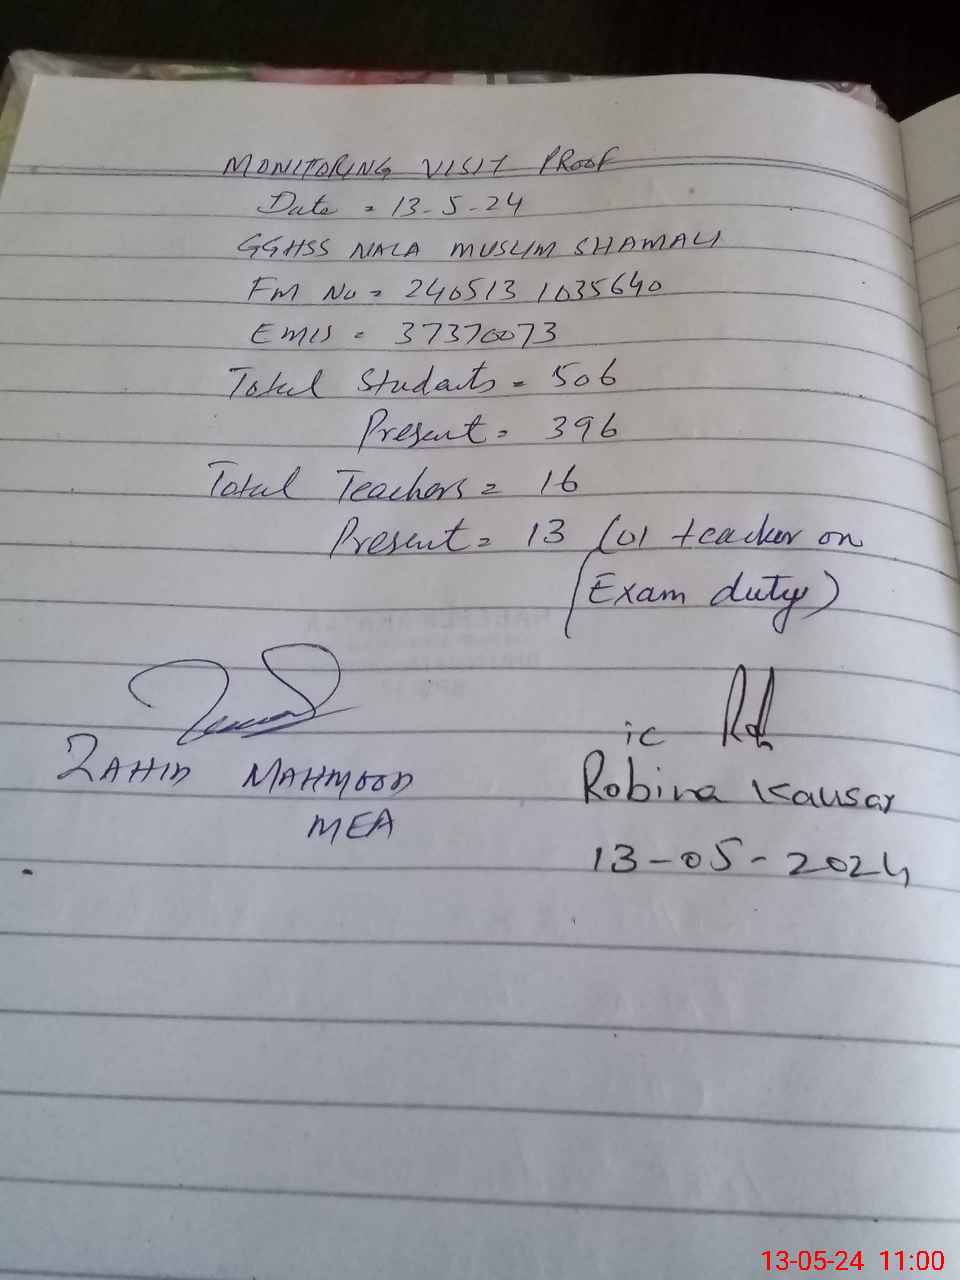 MONITORING VISIT PROOF
Date = 13-5-24
GGHSS NALA MUSLIM SHAMALI
FM No = 240513 1035640
EMIS = 37370073
Total Students = 506
Present = 396
Total Teachers = 16
Present = 13 (01 teacher on
(Exam duty)
ic
ZAHID MAHMOOD
Robina Kausar
MEA
13-05-2024
13-05-24 11:00